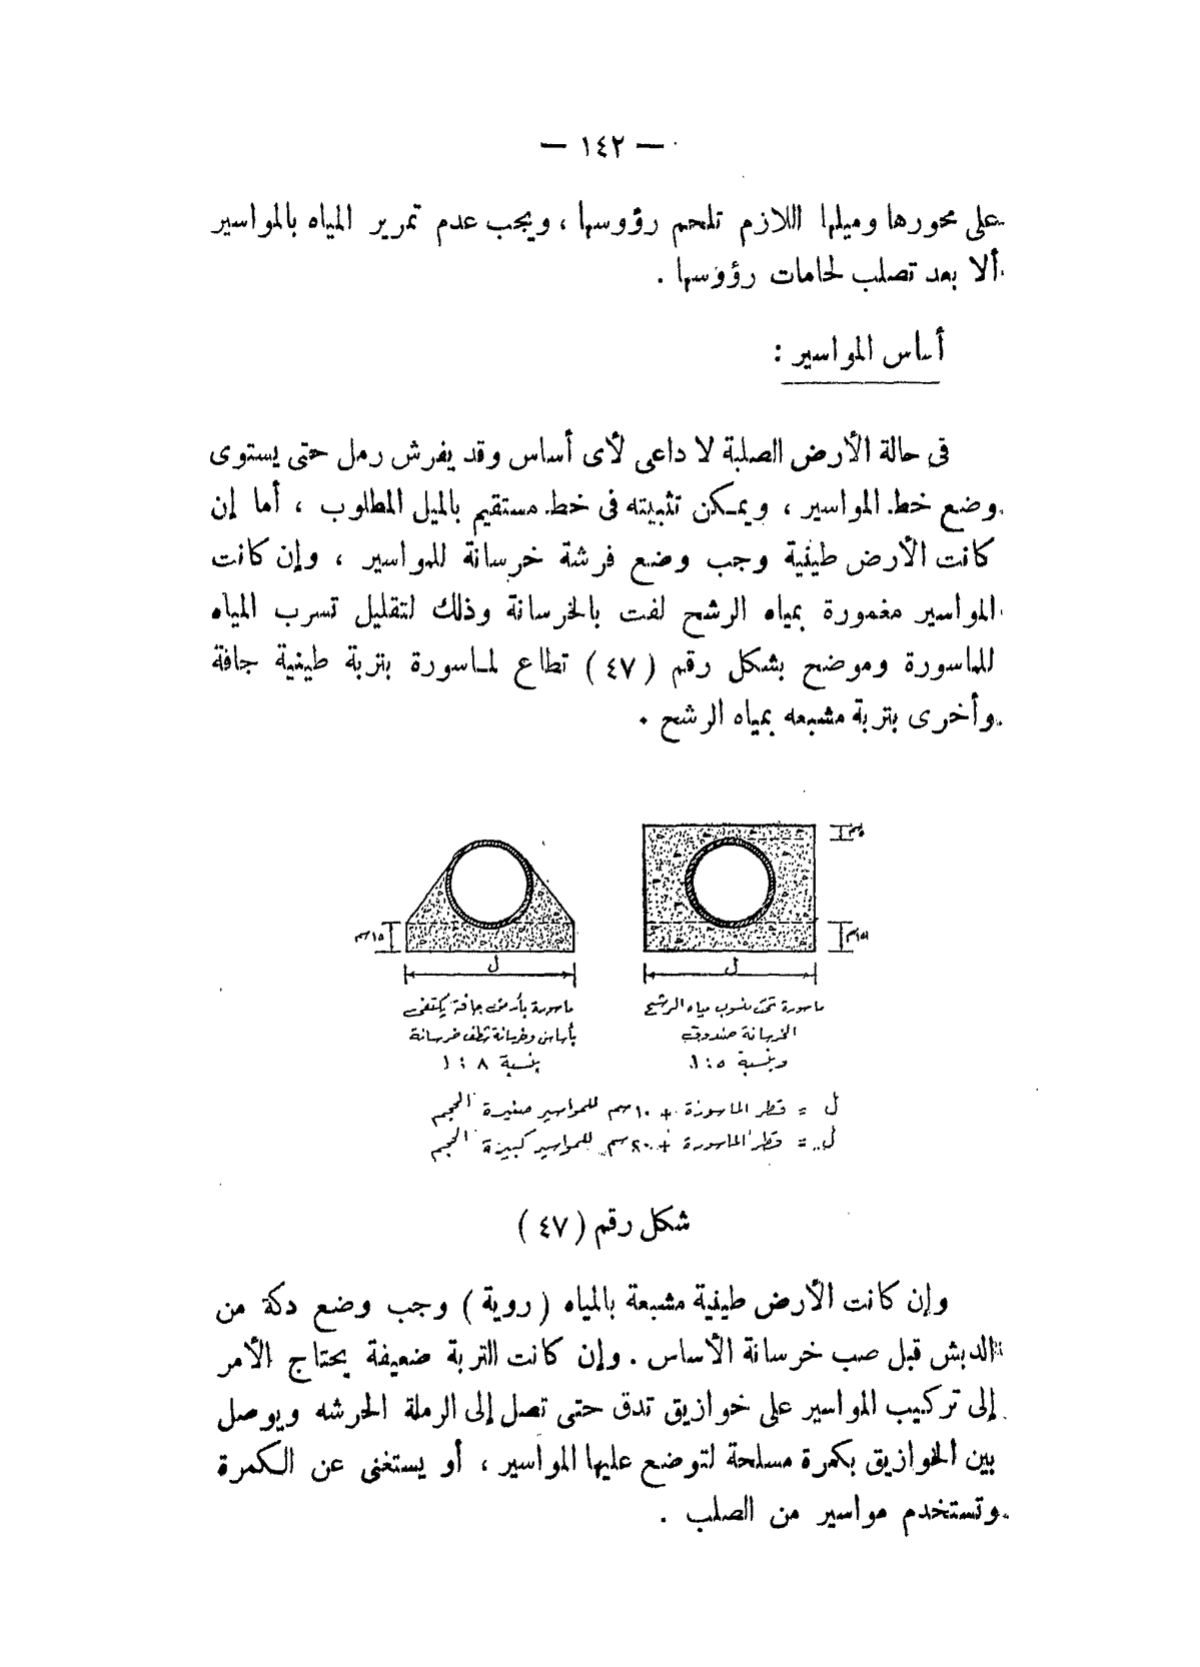 — ١٤٢ —
على محورها وميلها اللازم تلحم رؤوسها ، ويجب عدم تمرير المياه بالمواسير
ألا بعد تصلب لحامات رؤوسها .
أساس المواسير :
فى حالة الأرض الصلبة لا داعى لأى أساس وقد يفرش رمل حتى يستوى
وضع خط المواسير ، ويمكن تثبيته فى خط مستقيم بالميل المطلوب ، أما إن
كانت الأرض طينية وجب وضع فرشة خرسانة للمواسير ، وإن كانت
المواسير مغمورة بمياه الرشح لفت بالخرسانة وذلك لتقليل تسرب المياه
للماسورة وموضح بشكل رقم ( ٤٧ ) تطاع لماسورة بتربة طينية جافة
وأخرى بتربة مشبعه بمياه الرشح .
٥سم
١٥سم
١٥سم
ل
ل
ماسورة تحت منسوب مياه الرشح
الخرسانة صندوق
وبنسبة ٥ : ١
ماسورة بأرض جافة يكتفى
بأساس وخرسانة بنظف خرسانة
بنسبة ٨ : ١
ل = قطر الماسورة + ١٠سم للمواسير صغيرة الحجم
ل = قطر الماسورة + ٢٠سم للمواسير كبيرة الحجم
شكل رقم ( ٤٧ )
وإن كانت الأرض طينية مشبعة بالمياه ( روية ) وجب وضع دكة من
الدبش قبل صب خرسانة الأساس . وإن كانت التربة ضعيفة يحتاج الأمر
إلى تركيب المواسير على خوازيق تدق حتى تصل إلى الرملة الحرشه ويوصل
بين الخوازيق بكمرة مسلحة لتوضع عليها المواسير ، أو يستغنى عن الكمرة
وتستخدم مواسير من الصلب .